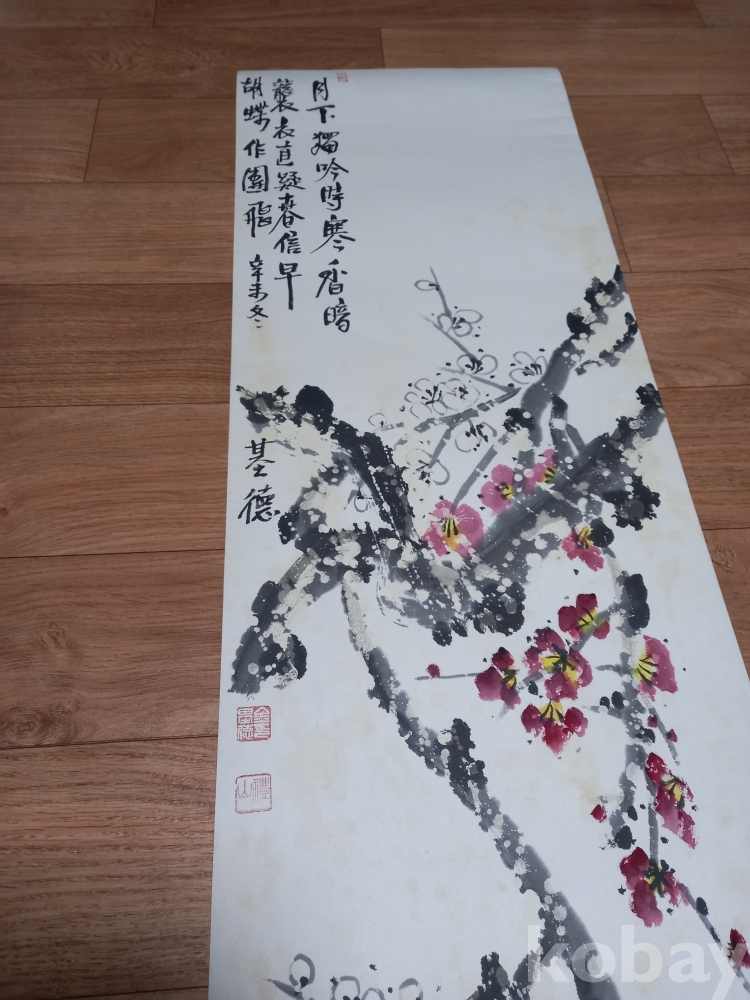 月下獨吟時寒香暗
襲衣直疑春信早
胡蝶作團飛 辛未冬
基德
kobay